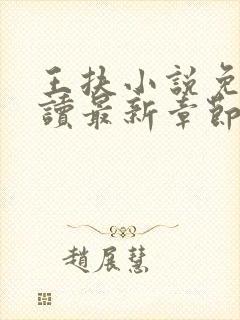 王扶小說免
讀最新章節
趙展慧